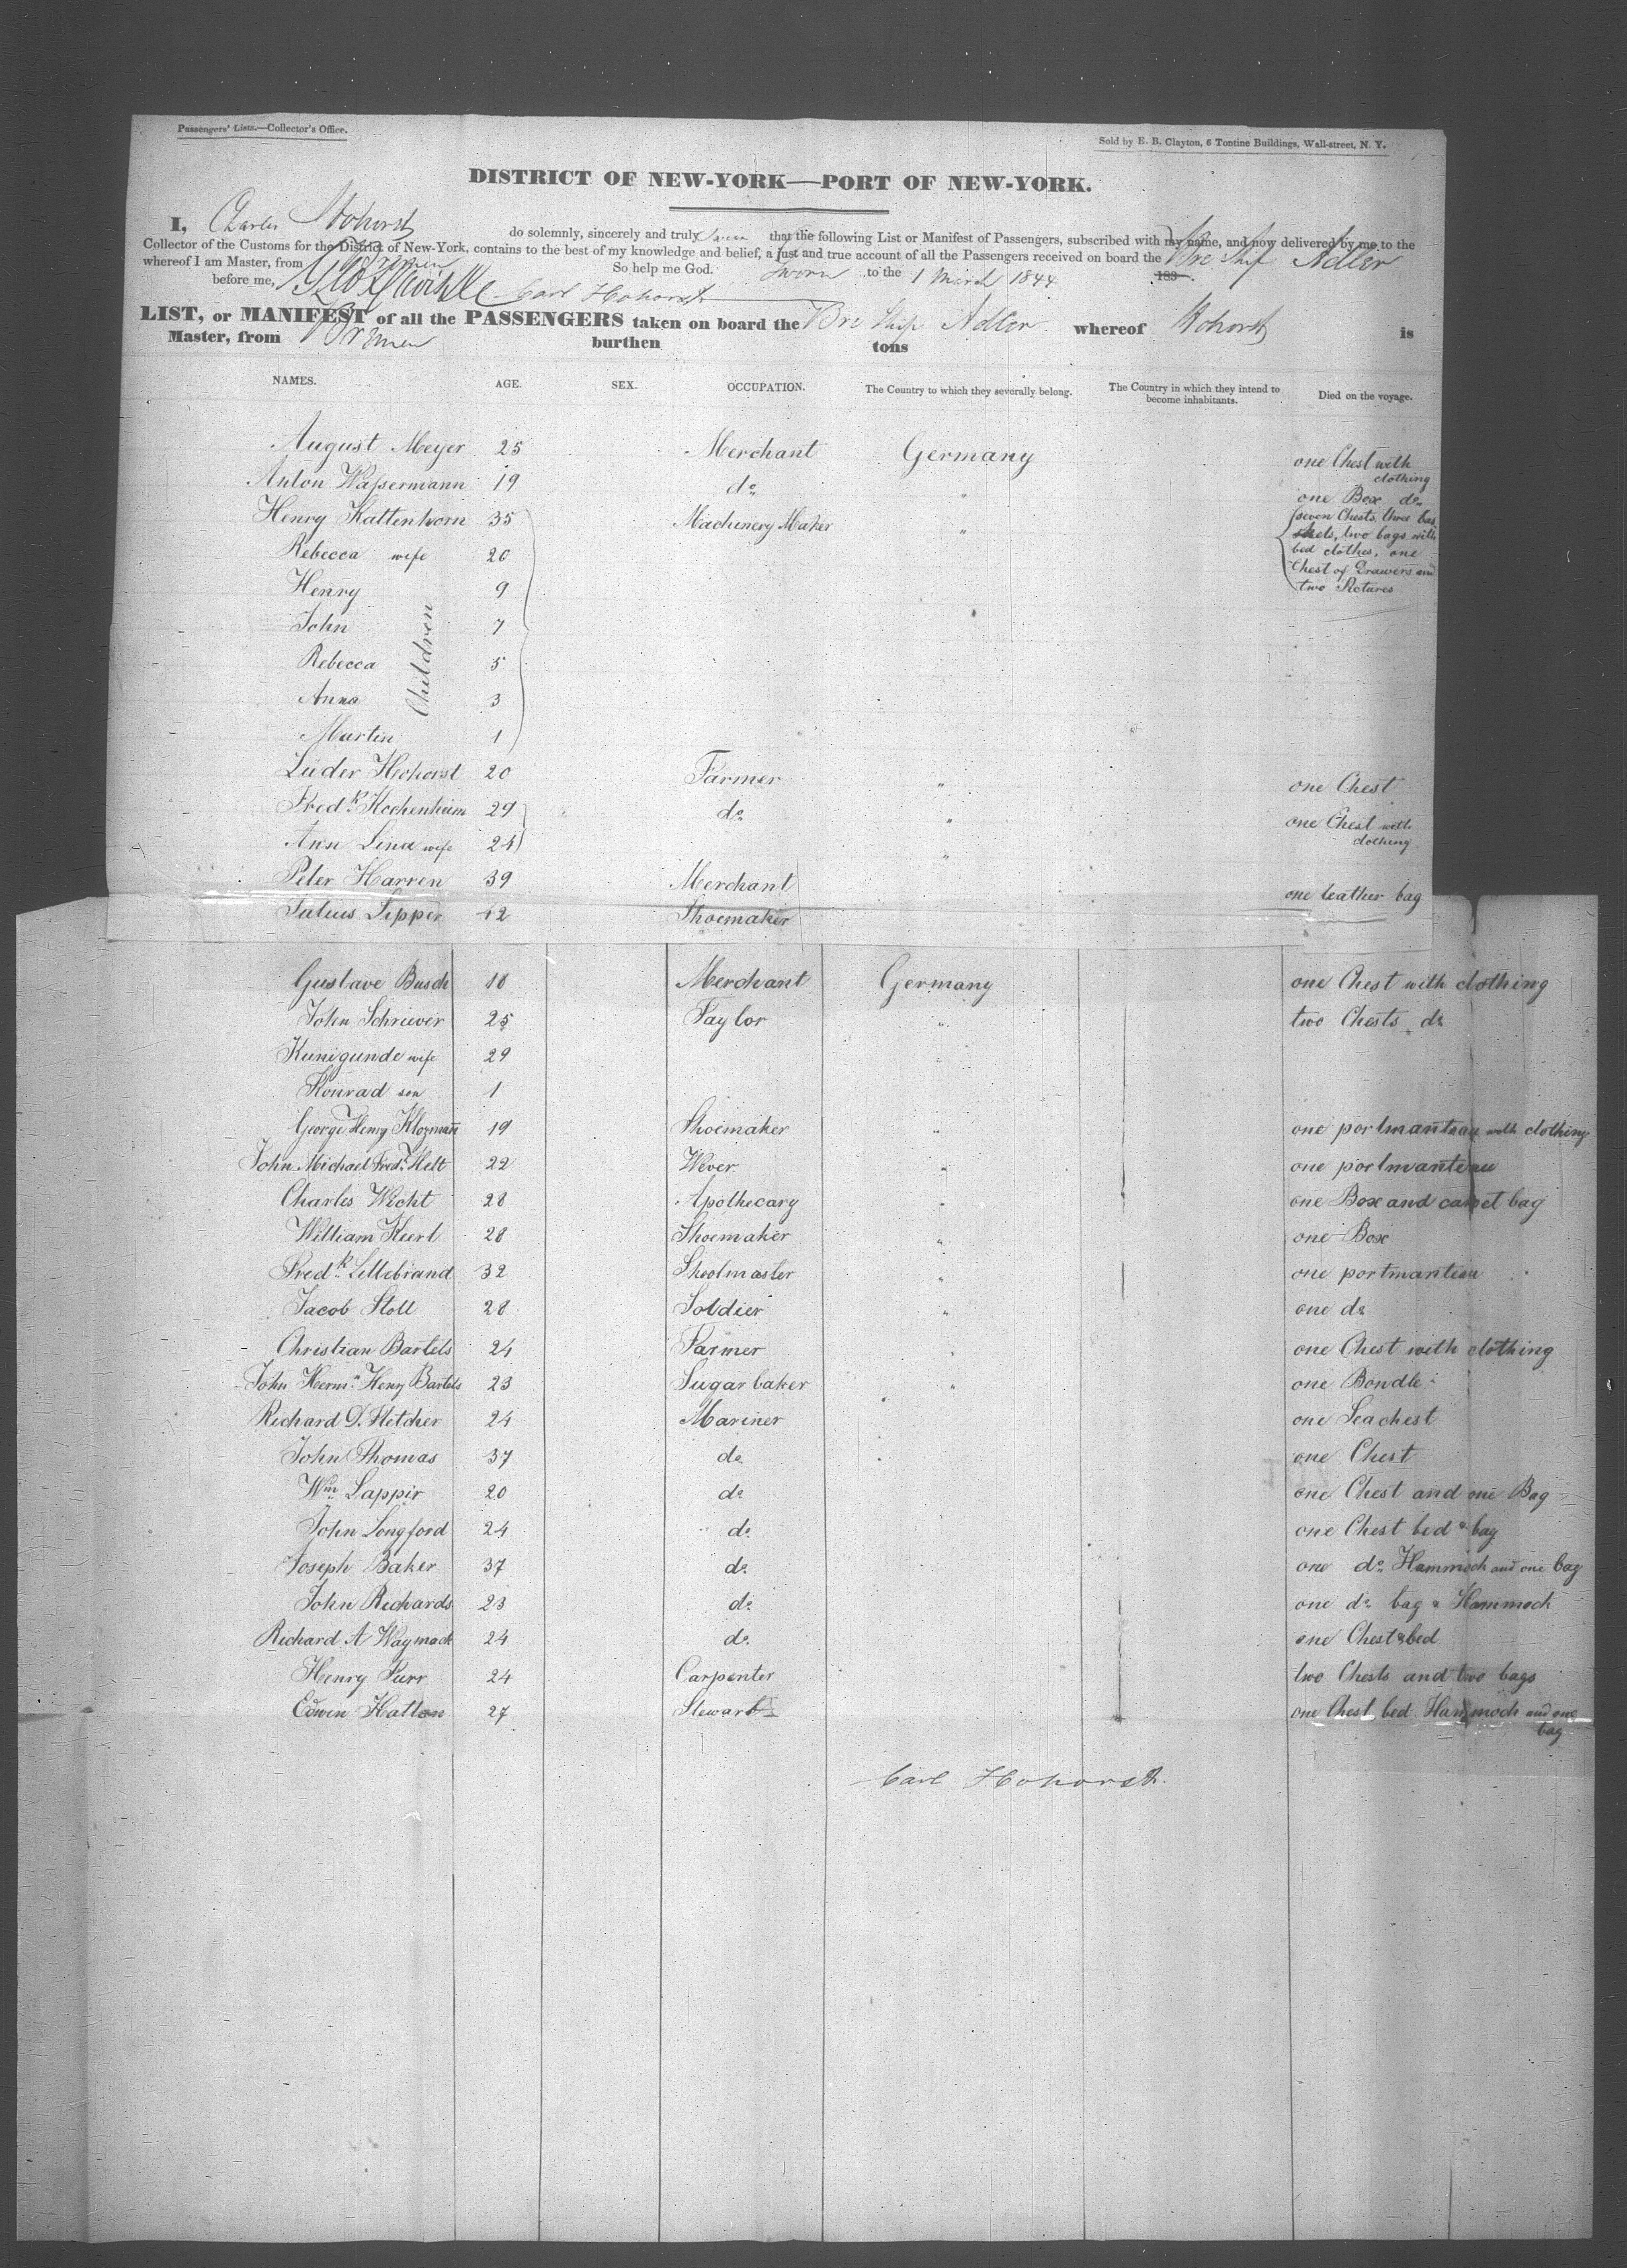 Passengers' Lists.—Collector's Office.
Sold by E. B. Clayton, 6 Tontine Buildings, Wall-street, N. Y.
DISTRICT OF NEW-YORK—PORT OF NEW-YORK.
I, Charles Hohorst do solemnly, sincerely and truly swear that the following List or Manifest of Passengers, subscribed with my name, and now delivered by me to the
Collector of the Customs for the District of New-York, contains to the best of my knowledge and belief, a just and true account of all the Passengers received on board the Bre Ship Adler
whereof I am Master, from Bremen So help me God.
Sworn to the 1 March 1844 183 .
before me, Carl Hohorst
LIST, or MANIFEST of all the PASSENGERS taken on board the Bre Ship Adler whereof Hohorst is
Master, from Bremen burthen tons
NAMES. AGE. SEX. OCCUPATION. The Country to which they severally belong. The Country in which they intend to become inhabitants. Died on the voyage.
August Meyer 25 Merchant Germany one Chest with clothing
Anton Wassermann 19 do " one Box do
Henry Kattenhorn 35 Machinery Maker " seven Chests, three bas
Rebecca wife 20 skets, two bags with bed clothes, one
Henry 9 Chest of Drawers and two Pictures
John 7
Children
Rebecca 5
Anna 3
Martin 1
Lüder Hohorst 20 Farmer " one Chest
Fredk Hochenheim 29 do " one Chest with clothing
Ann Lina wife 24 "
Peter Harren 39 Merchant one leather bag
Julius Lipper 42 Shoemaker
Gustave Busch 18 Merchant Germany one Chest with clothing
John Schriever 25 Taylor " two Chests do
Kunigunde wife 29
Konrad son 1
George Henry Klozmann 19 Shoemaker " one portmanteau with clothing
John Michael Fred. Helt 22 Wever " one portmanteau
Charles Wicht 28 Apothecary " one Box and carpet bag
William Keerl 28 Shoemaker " one Box
Fredk Lillebrand 32 Shoolmaster " one portmanteau
Jacob Stoll 28 Soldier " one do
Christian Bartels 24 Farmer " one Chest with clothing
John Herm. Henry Bartels 23 Sugar baker " one Bondle
Richard D. Fletcher 24 Mariner one Seachest
John Thomas 37 do one Chest
Wm Lappir 20 do one Chest and one Bag
John Longford 24 do one Chest bed & bag
Joseph Baker 37 do one do Hammock and one bag
John Richards 23 do one do bag & Hammock
Richard A Waymack 24 do one Chest & bed
Henry Purr 24 Carpenter two Chests and two bags
Edwin Hatton 27 Stewart one Chest bed Hammock and one bag
Carl Hohorst.